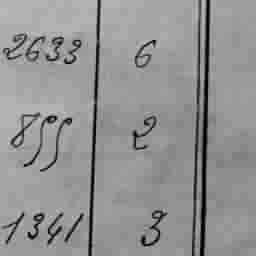 2633 6
855 2
1341 3